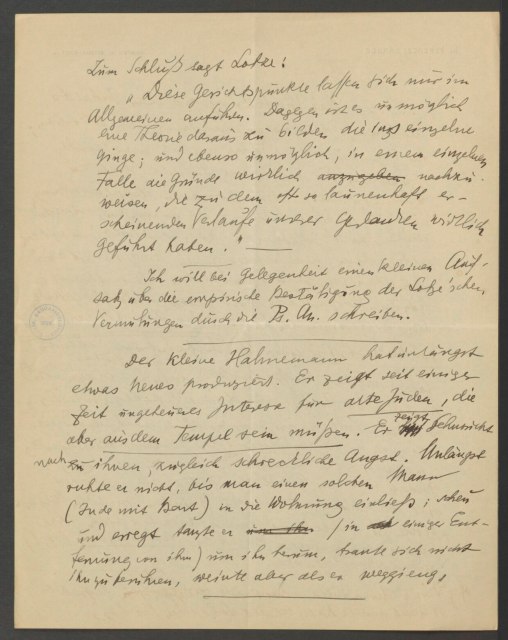 Zum Schluß sagt Lotze:
„Diese Gesichtspunkte lassen sich nur im
Allgemeinen anführen. Dagegen ist es unmöglich
eine Theorie daraus zu bilden die ins einzelne
ginge; und ebenso unmöglich, in einem einzelnen
Falle die Gründe wirklich anzugeben nachzu-
weisen, die zu dem oft so launenhaft er-
scheinenden Verlaufe unserer Gedanken wirklich
geführt haben."
Ich will bei Gelegenheit einen kleinen Auf-
satz über die empirische Bestätigung der Lotze'schen
Vermutungen durch die Ps. An. schreiben.
Der kleine Hahnemann hat unlängst
etwas Neues produziert. Er zeigt seit einiger
Zeit ungeheueres Interesse für alte Juden, die
aber aus dem Tempel sein müßen. Er zeigt Sehnsucht
nach zu ihnen, zugleich schreckliche Angst. Unlängst
ruhte er nicht, bis man einen solchen Mann
(Jude mit Bart) in die Wohnung einließ; scheu
und erregt tanzte er um ihn (in einiger Ent-
fernung von ihm) um ihn herum, traute sich nicht
ihn zu berühren, weinte aber als er weggieng.